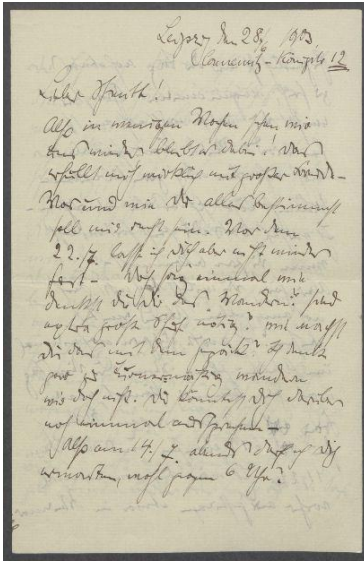 Leipzig den 28/6 1903.
Connewitz-Königstr 12
Lieber Schmitt!
Also in wenigen Wochen sehen wir
uns wieder bleibt es dabei! Das
erfüllt mich wirklich mit großer Freude -
Was und wie Du alles bestimmst
soll mir recht sein. Vor dem
22./7. lasse ich Dich aber nicht wieder
fort - Noch sag einmal wie
denkst Du Dir das Wandern? sind
extra große Schuh nötig? wie machst
Du das mit dem Gepäck? Ich denke
gar zu
wandern
wir doch nicht. Du könntest Dich darüber
noch einmal aussprechen -
Also am 14./7. abends darf ich Dich
erwarten, wohl gegen 6 Uhr?